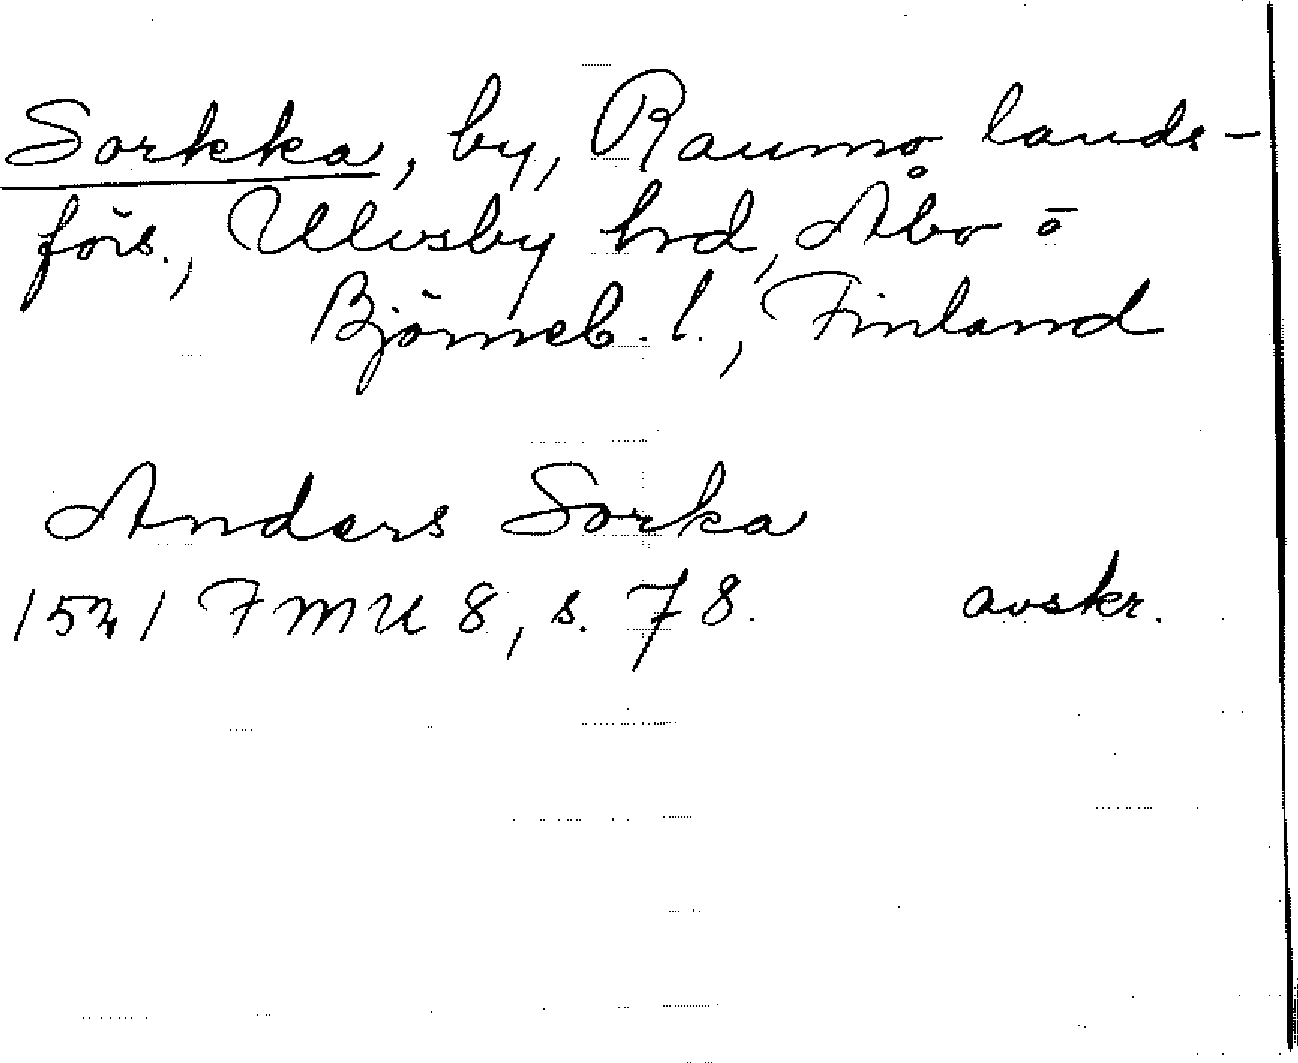 Sorkka, by, Raumo lands-
förs., Ulvsby hrd, Åbo o
Björneb. l., Finland
Anders Sorka
1541 FMU 8, s. 78. avskr.